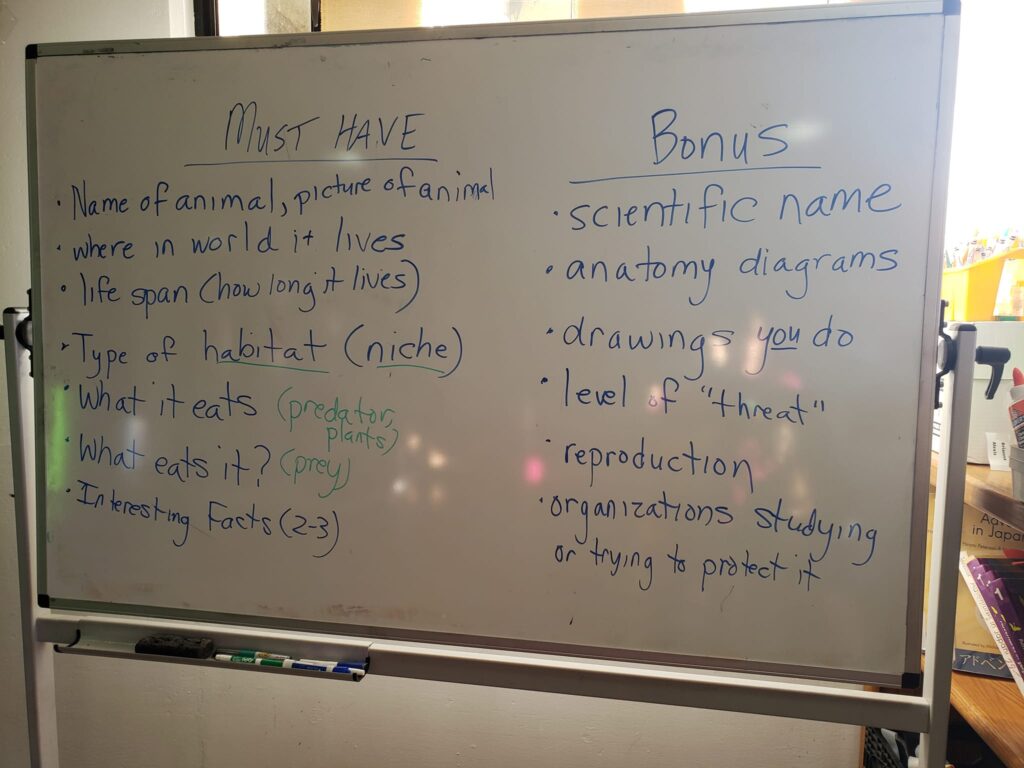 MUST HAVE
• Name of animal, picture of animal
• where in world it lives
• life span (how long it lives)
• Type of habitat (niche)
• What it eats (predator,
plants)
• What eats it? (prey)
• Interesting Facts (2-3)
Bonus
• scientific name
• anatomy diagrams
• drawings you do
• level of "threat"
• reproduction
• organizations studying
or trying to protect it
in Japan
アドベン